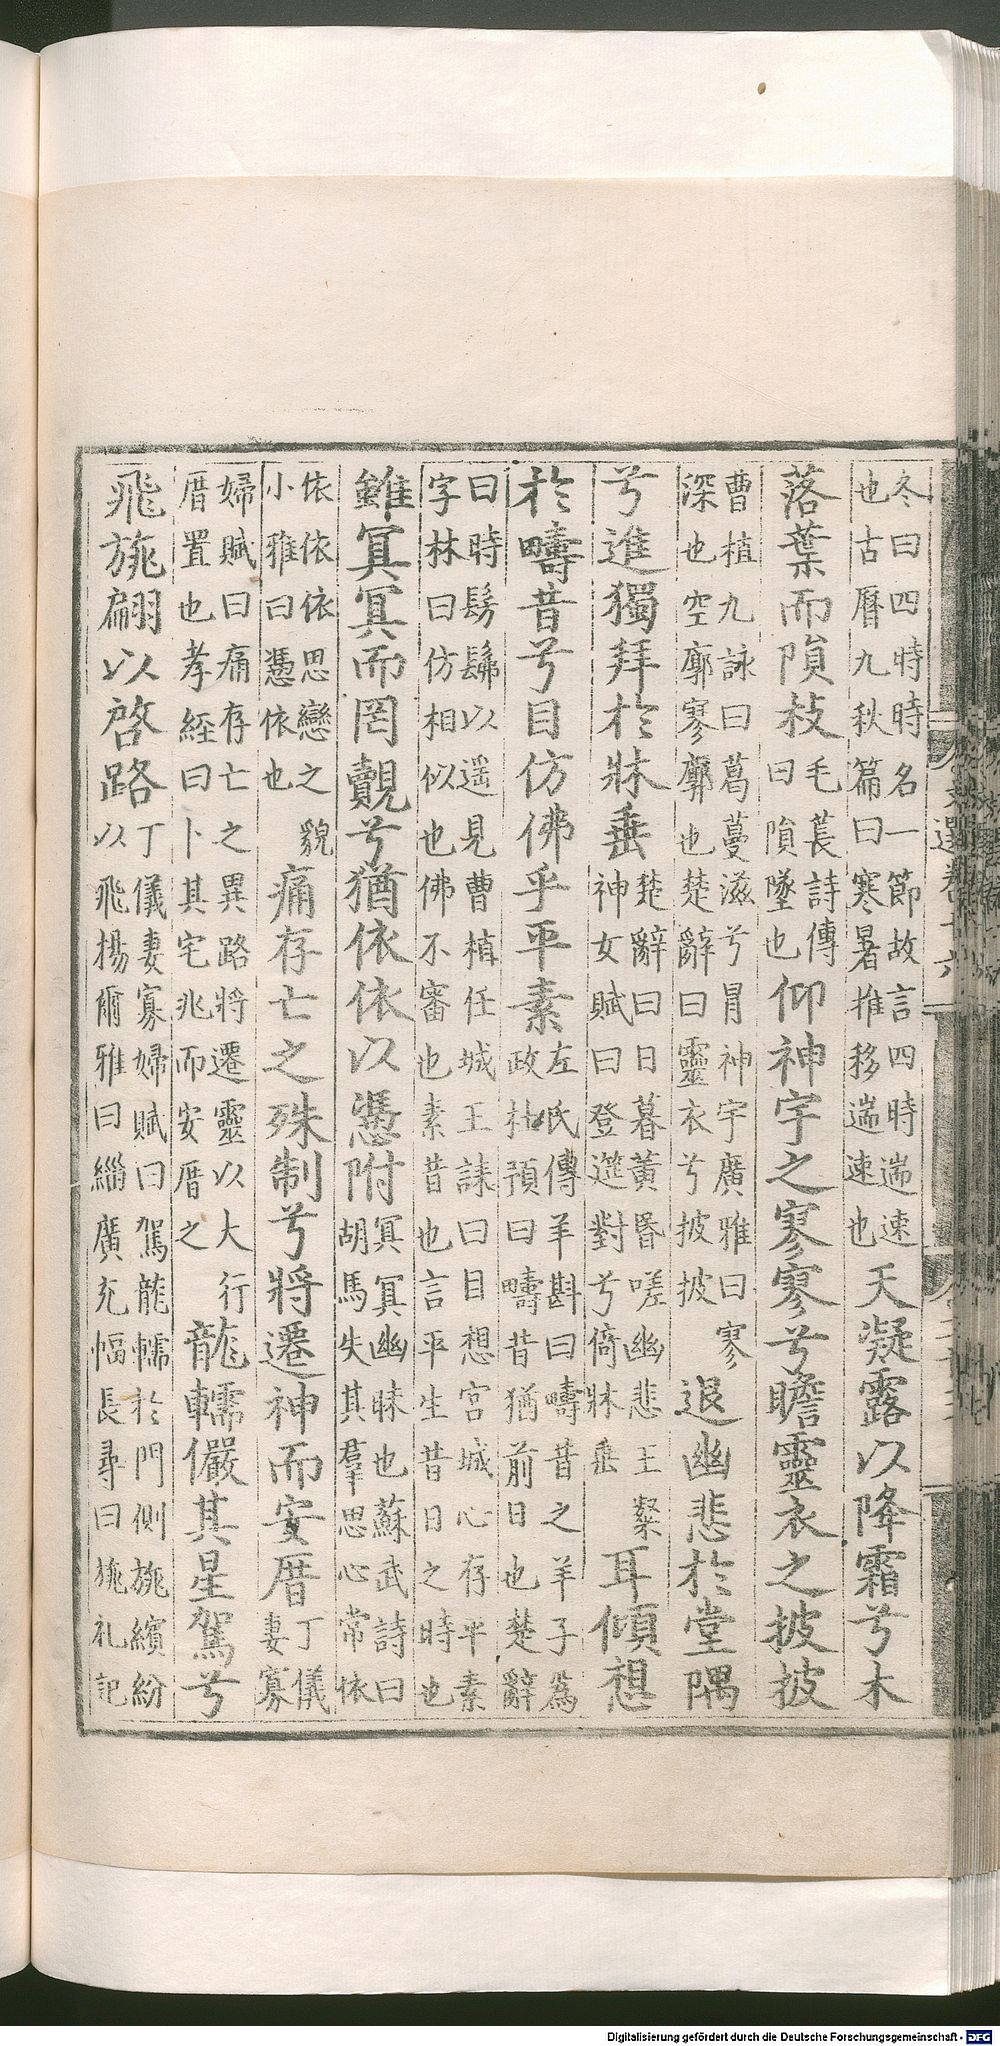 冬曰四時時名一節故言四時遄速
也古曆九秋篇曰寒暑推移遄速也
天凝露以降霜兮木
落葉而隕枝
毛萇詩傳
曰隕墜也
仰神宇之寥寥兮瞻靈衣之披披
曹植九詠曰葛蔓滋兮冒神宇廣雅曰寥
深也空廓寥廓也楚辭曰靈衣兮披披
退幽悲於堂隅
兮進獨拜於牀垂
楚辭曰日暮黃昏嗟幽悲王粲
神女賦曰登筵對兮倚牀垂
耳傾想
於疇昔兮目仿佛乎平素
左氏傳羊斟曰疇昔之羊子為
政杜預曰疇昔猶前日也楚辭
曰時髣髴以遥見曹植任城王誄曰目想宮城心存平素
字林曰仿相似也佛不審也素昔也言平生昔日之時也
雖冥冥而罔覿兮猶依依以憑附
冥冥幽昧也蘇武詩曰
胡馬失其羣思心常依
依依依思戀之貌
小雅曰憑依也
痛存亡之殊制兮將遷神而安厝
丁儀
妻寡
婦賦曰痛存亡之異路將遷靈以大行
厝置也孝經曰卜其宅兆而安厝之
龍轜儼其星駕兮
飛旐翩以啓路
丁儀妻寡婦賦曰駕龍轜於門側旐繽紛
以飛揚爾雅曰緇廣充幅長尋曰旐礼記
文選卷十六
Digitalisierung gefördert durch die Deutsche Forschungsgemeinschaft - DFG